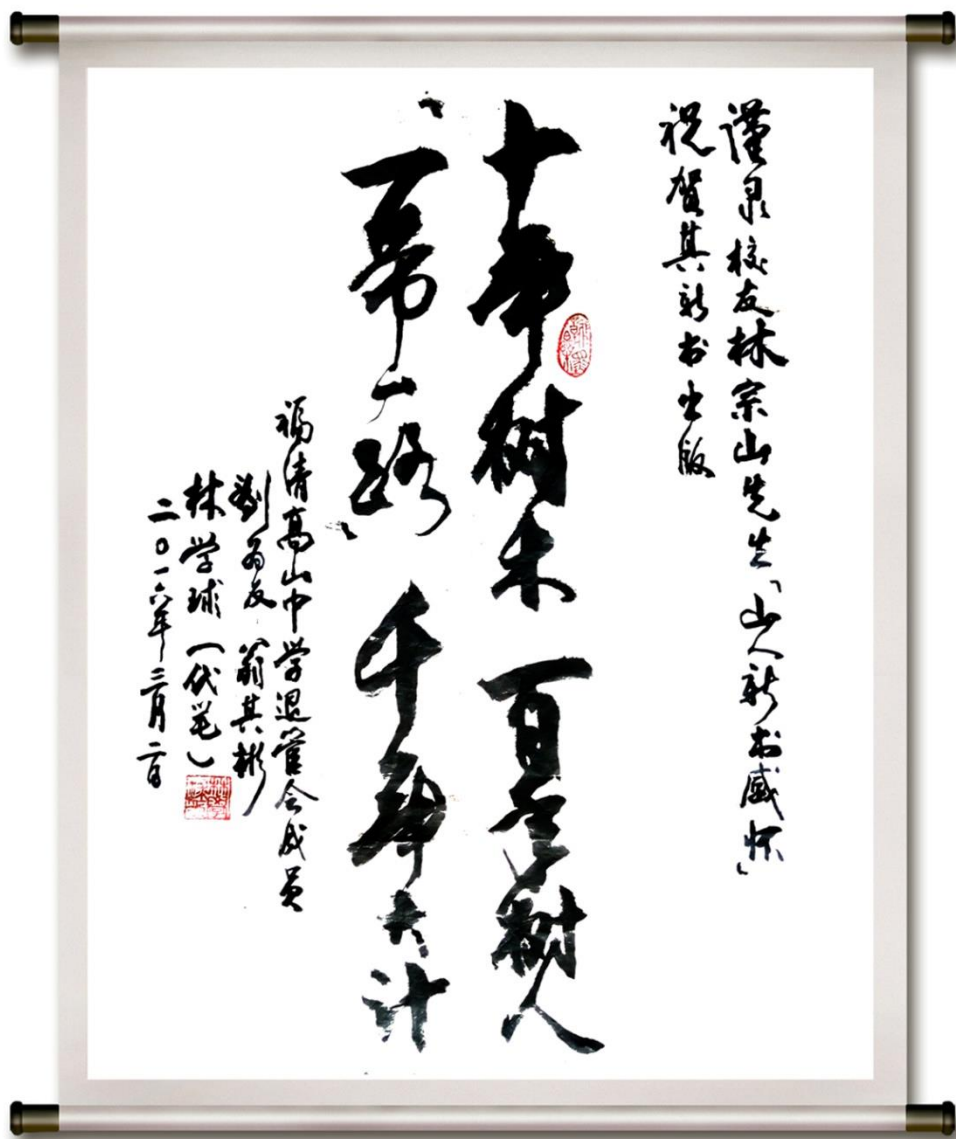 谨录校友林宗山先生「山人新书感怀」
祝贺其新书出版
十年树木 百年树人
“一带一路” 千年大计
福清高山中学退管会成员
刘 友 翁其彬
林学球（代笔）
二〇一六年三月二日